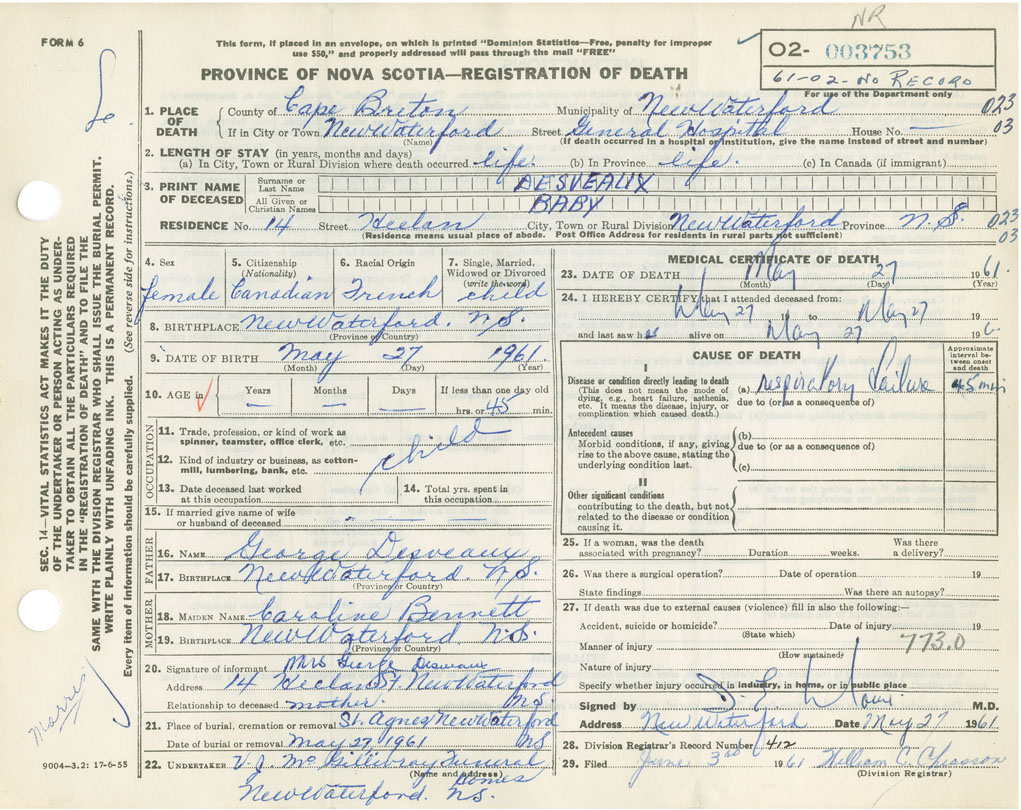 NR
FORM 6
This form, if placed in an envelope, on which is printed "Dominion Statistics—Free, penalty for improper
use $50," and properly addressed will pass through the mail "FREE"
O2- 003753
61-02-No Record
For use of the Department only
PROVINCE OF NOVA SCOTIA—REGISTRATION OF DEATH
1. PLACE OF DEATH County of Cape Breton Municipality of New Waterford 023
If in City or Town New Waterford Street General Hospital House No. — 03
(Name) (If death occurred in a hospital or institution, give the name instead of street and number)
2. LENGTH OF STAY (in years, months and days)
(a) In City, Town or Rural Division where death occurred life. (b) In Province life. (c) In Canada (if immigrant)
3. PRINT NAME OF DECEASED Surname or Last Name DESVEAUX
All Given or Christian Names BABY
RESIDENCE No. 14 Street Heelan City, Town or Rural Division New Waterford Province N.S. 023
(Residence means usual place of abode. Post Office Address for residents in rural parts not sufficient) 03
4. Sex female
5. Citizenship (Nationality) Canadian
6. Racial Origin French
7. Single, Married, Widowed or Divorced (write the word) child
8. BIRTHPLACE New Waterford. N.S.
(Province or Country)
9. DATE OF BIRTH May 27 1961
(Month) (Day) (Year)
10. AGE in Years — Months — Days — If less than one day old
hrs. or 45 min.
OCCUPATION
11. Trade, profession, or kind of work as
spinner, teamster, office clerk, etc.
child
12. Kind of industry or business, as cotton-
mill, lumbering, bank, etc.
13. Date deceased last worked
at this occupation
14. Total yrs. spent in
this occupation
15. If married give name of wife
or husband of deceased
FATHER
16. NAME George Desveaux
17. BIRTHPLACE New Waterford. N.S.
(Province or Country)
MOTHER
18. MAIDEN NAME Caroline Bennett
19. BIRTHPLACE New Waterford N.S.
(Province or Country)
20. Signature of informant Mrs George Desveaux
Address 14 Heelan St. New Waterford
Relationship to deceased mother. N.S.
21. Place of burial, cremation or removal St. Agnes New Waterford
Date of burial or removal May 27, 1961 NS
22. UNDERTAKER V.J. McGillivray Funeral
(Name and address) Homes
New Waterford. N.S.
9004—3.2: 17-6-55
MEDICAL CERTIFICATE OF DEATH
23. DATE OF DEATH May 27 1961.
(Month) (Day) (Year)
24. I HEREBY CERTIFY that I attended deceased from:
May 27 to May 27
and last saw h alive on May 27 196
CAUSE OF DEATH
Approximate interval between onset and death
I
Disease or condition directly leading to death
(This does not mean the mode of
dying, e.g., heart failure, asthenia,
etc. It means the disease, injury, or
complication which caused death.)
(a) respiratory failure 45 min
due to (or as a consequence of)
Antecedent causes
Morbid conditions, if any, giving
rise to the above cause, stating the
underlying condition last.
(b)
due to (or as a consequence of)
(c)
II
Other significant conditions
contributing to the death, but not
related to the disease or condition
causing it.
25. If a woman, was the death
associated with pregnancy? Duration weeks. Was there
a delivery?
26. Was there a surgical operation? Date of operation 19
State findings Was there an autopsy?
27. If death was due to external causes (violence) fill in also the following:—
Accident, suicide or homicide? Date of injury 19
(State which)
Manner of injury 773.0
(How sustained)
Nature of injury
Specify whether injury occurred in industry, in home, or in public place
Signed by M.D.
Address New Waterford Date May 27 1961.
28. Division Registrar's Record Number 412
29. Filed June 3rd 1961 William C. Chiasson
(Division Registrar)
SEC. 14—VITAL STATISTICS ACT MAKES IT THE DUTY
OF THE UNDERTAKER OR PERSON ACTING AS UNDER-
TAKER TO OBTAIN ALL THE PARTICULARS REQUIRED
IN THE "REGISTRATION OF DEATH" AND TO FILE THE
SAME WITH THE DIVISION REGISTRAR WHO SHALL ISSUE THE BURIAL PERMIT.
WRITE PLAINLY WITH UNFADING INK. THIS IS A PERMANENT RECORD.
Every item of information should be carefully supplied. (See reverse side for instructions.)
Morris